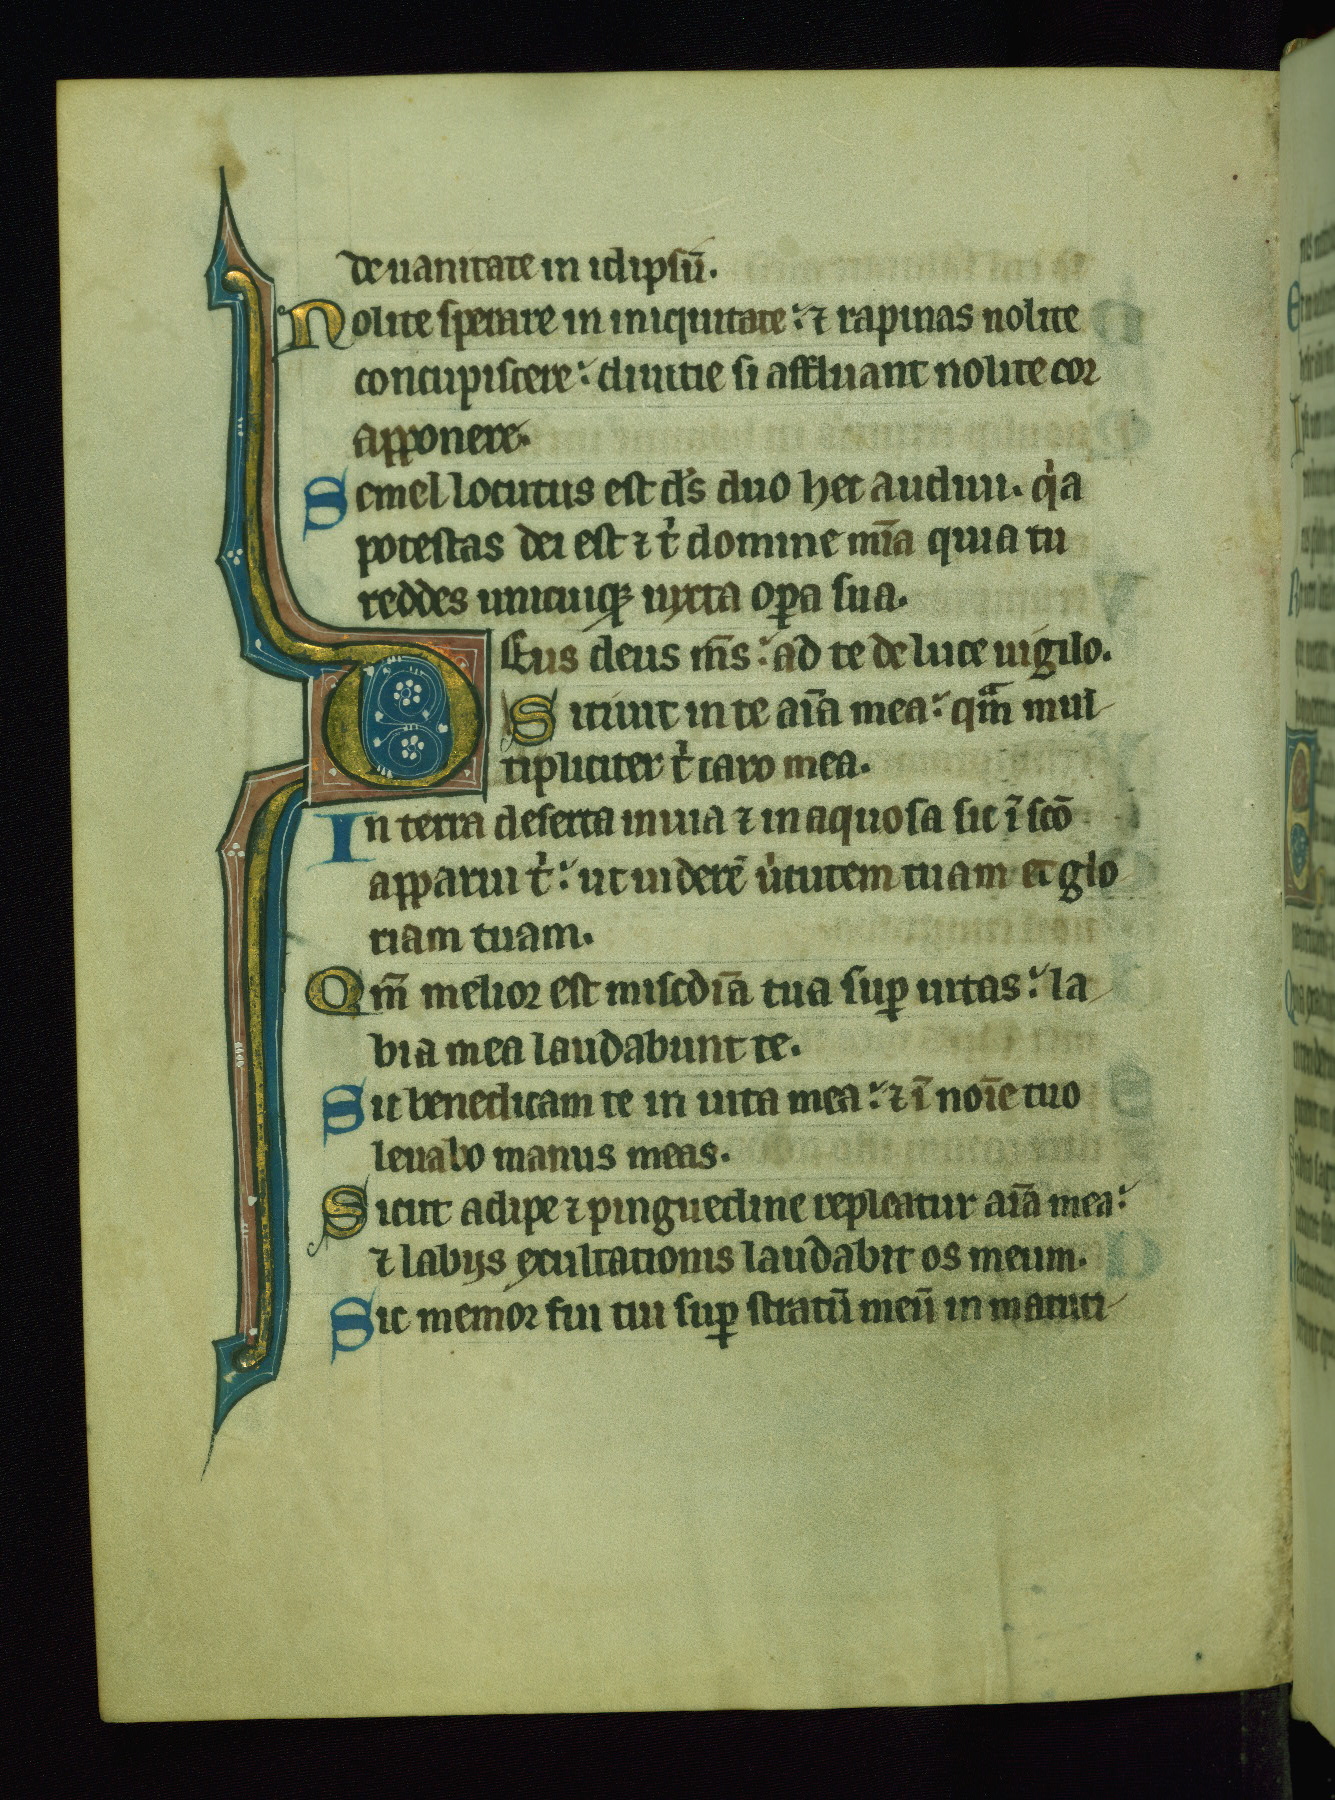 de uanitate in idipsū.
Nolite sperare in iniquitate: ⁊ rapinas nolite
concupiscere: diuitie si affluant nolite cor
apponere.
Semel locutus est d̄s duo hec audiui. qͥa
potestas dei est ⁊ tͥ domine mīa quia tu
reddes unicuiqꝫ iuxta oꝑa sua.
Deus deus m̄s: ad te de luce uigilo.
Sitiuit in te aīa mea: qͣm mul
tipliciter tͥ caro mea.
In terra deserta inuia ⁊ inaquosa sic ī scō
apparui tͥ: ut uiderē uͥtutem tuam et glo
riam tuam.
Qm̄ melior est miscdīa tua suꝑ uitas: la
bia mea laudabunt te.
Sic benedicam te in uita mea: ⁊ ī noīe tuo
leuabo manus meas.
Sicut adipe ⁊ pinguedine repleatur aīa mea:
⁊ labijs exultationis laudabit os meum.
Sic memor fui tui suꝑ stratū meū in matuti